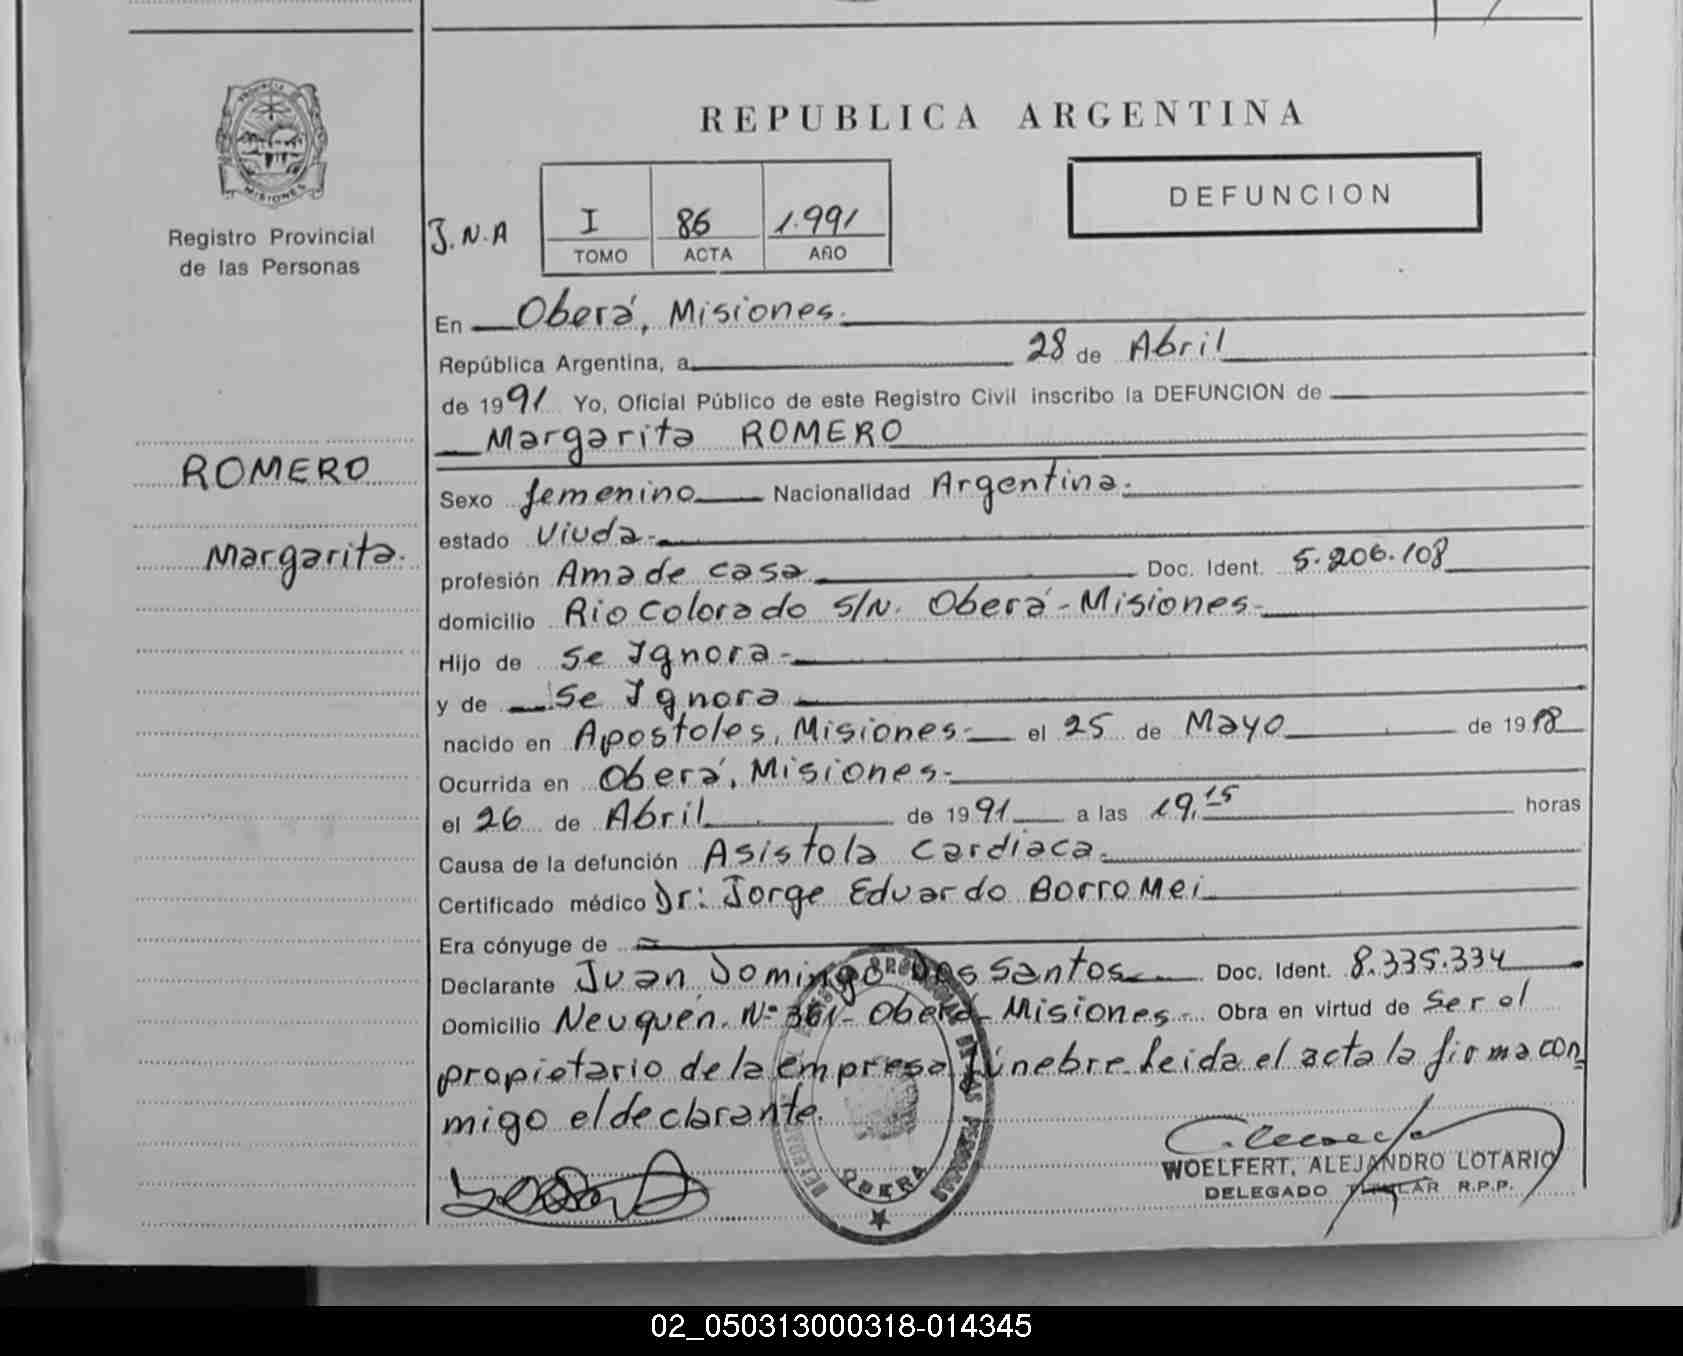 REPUBLICA ARGENTINA
DEFUNCION
PROVINCIA DE
MISIONES
Registro Provincial
de las Personas
J.N.A
I 86 1.991
TOMO ACTA AÑO
En Oberá, Misiones.
República Argentina, a 28 de Abril
de 1991 Yo, Oficial Público de este Registro Civil inscribo la DEFUNCION de
Margarita ROMERO
ROMERO
Margarita.
Sexo femenino Nacionalidad Argentina.
estado Viuda-
profesión Ama de casa Doc. Ident. 5.206.108
domicilio Rio Colorado S/N. Oberá-Misiones-
Hijo de Se Ignora-
y de Se Ignora
nacido en Apostoles, Misiones- el 25 de Mayo de 19
Ocurrida en Oberá, Misiones-
el 26 de Abril de 1991 a las 19,15 horas
Causa de la defunción Asistola Cardiaca.
Certificado médico Dr: Jorge Eduardo Borromei
Era cónyuge de
Declarante Juan Domingo Dos Santos Doc. Ident. 8.335.334
Domicilio Neuquén. Nº 361- Oberá- Misiones- Obra en virtud de Ser el
propietario de la empresa fúnebre. Leida el acta la firma con
migo el declarante.
OBERA
WOELFERT, ALEJANDRO LOTARIO
DELEGADO TITULAR R.P.P.
02_050313000318-014345